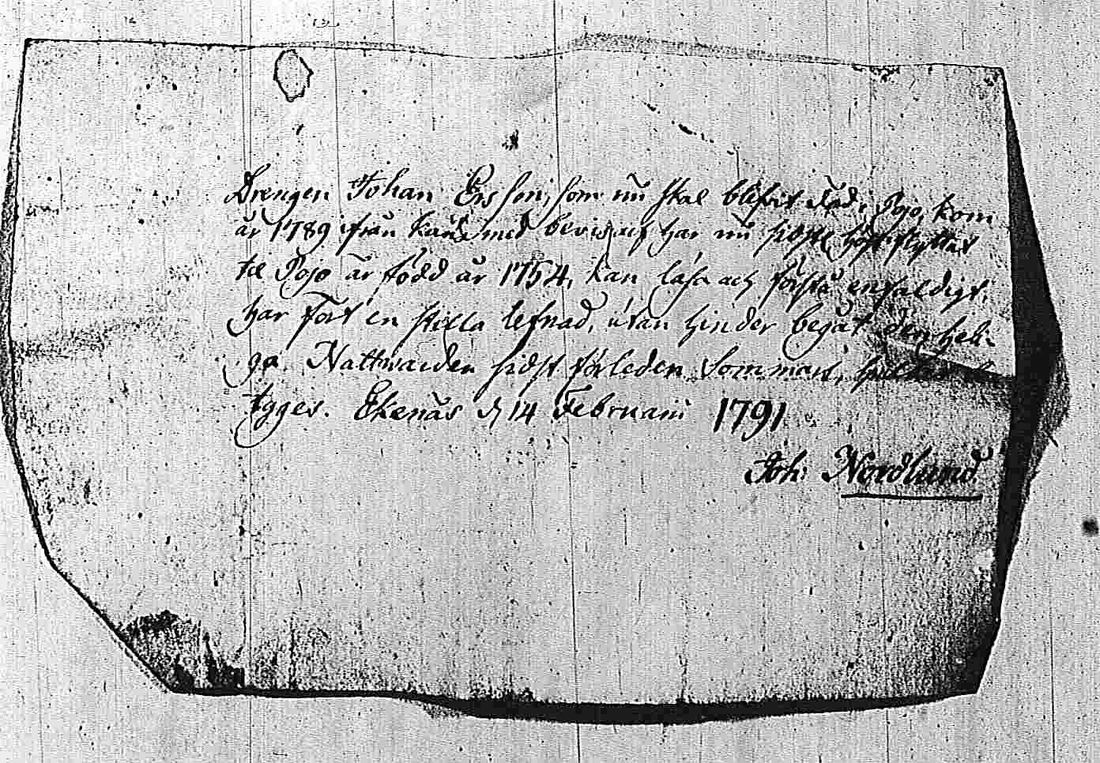 Drengen Johan Ersson, som nu skal blifvit Fad. Pojo, kom
år 1789 ifrån med bevis, och har nu sidste höst flyttat
til Pojo är född år 1754, kan läsa och förstå enfaldigt,
har fört en stilla lefnad, utan hinder begåt den heli-
ga Nattwarden sidst förleden Sommar,
tyges. Ekenäs d 14 Februarii 1791
Joh: Nordlund